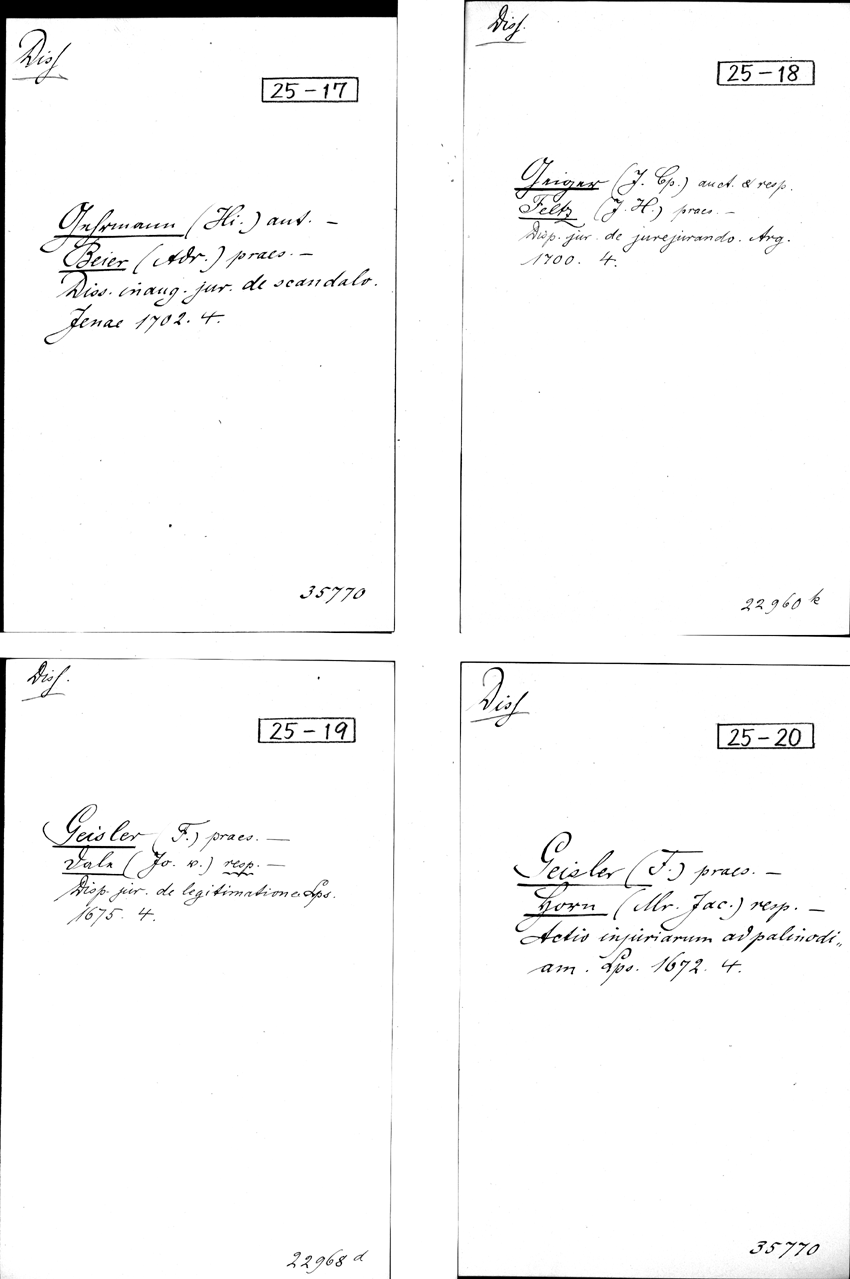 Diss.
25-17
Gehrmann (Hi.) aut. —
Beier (Adr.) praes. —
Diss. inaug. jur. de scandalo.
Jenae 1702. 4.
35770
Diss.
25-18
Geiger (J. Cp.) auct. & resp.
Feltz (J. H.) praes. —
Disp. jur. de jurejurando. Arg.
1700. 4.
22960 k
Diss.
25-19
Geisler (F.) praes. —
(Jo. v.) resp. —
Disp. jur. de legitimatione. Lps.
1675. 4.
22968 d
Diss
25-20
Geisler (F.) praes. —
Horn (Mr. Jac.) resp. —
Actio injuriarum ad palinodi„
am. Lps. 1672. 4.
35770